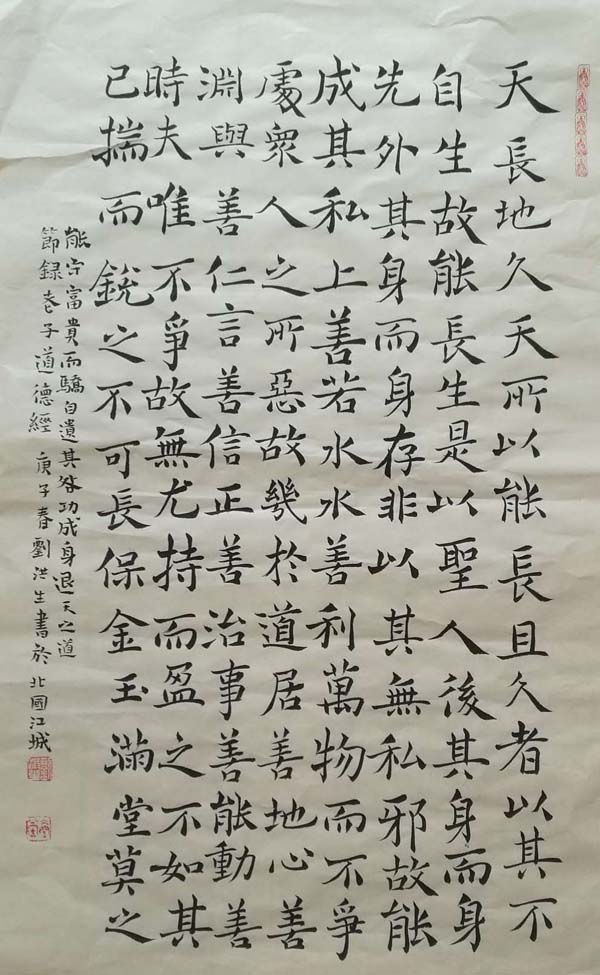 天長地久天所以能長且久者以其不
自生故能長生是以聖人後其身而身
先外其身而身存非以其無私邪故能
成其私上善若水水善利萬物而不爭
處衆人之所惡故幾於道居善地心善
淵與善仁言善信正善治事善能動善
時夫唯不爭故無尤持而盈之不如其
已揣而銳之不可長保金玉滿堂莫之
能守富貴而驕自遺其咎功成身退天之道
節録老子道德經 庚子春劉洪生書於北國江城